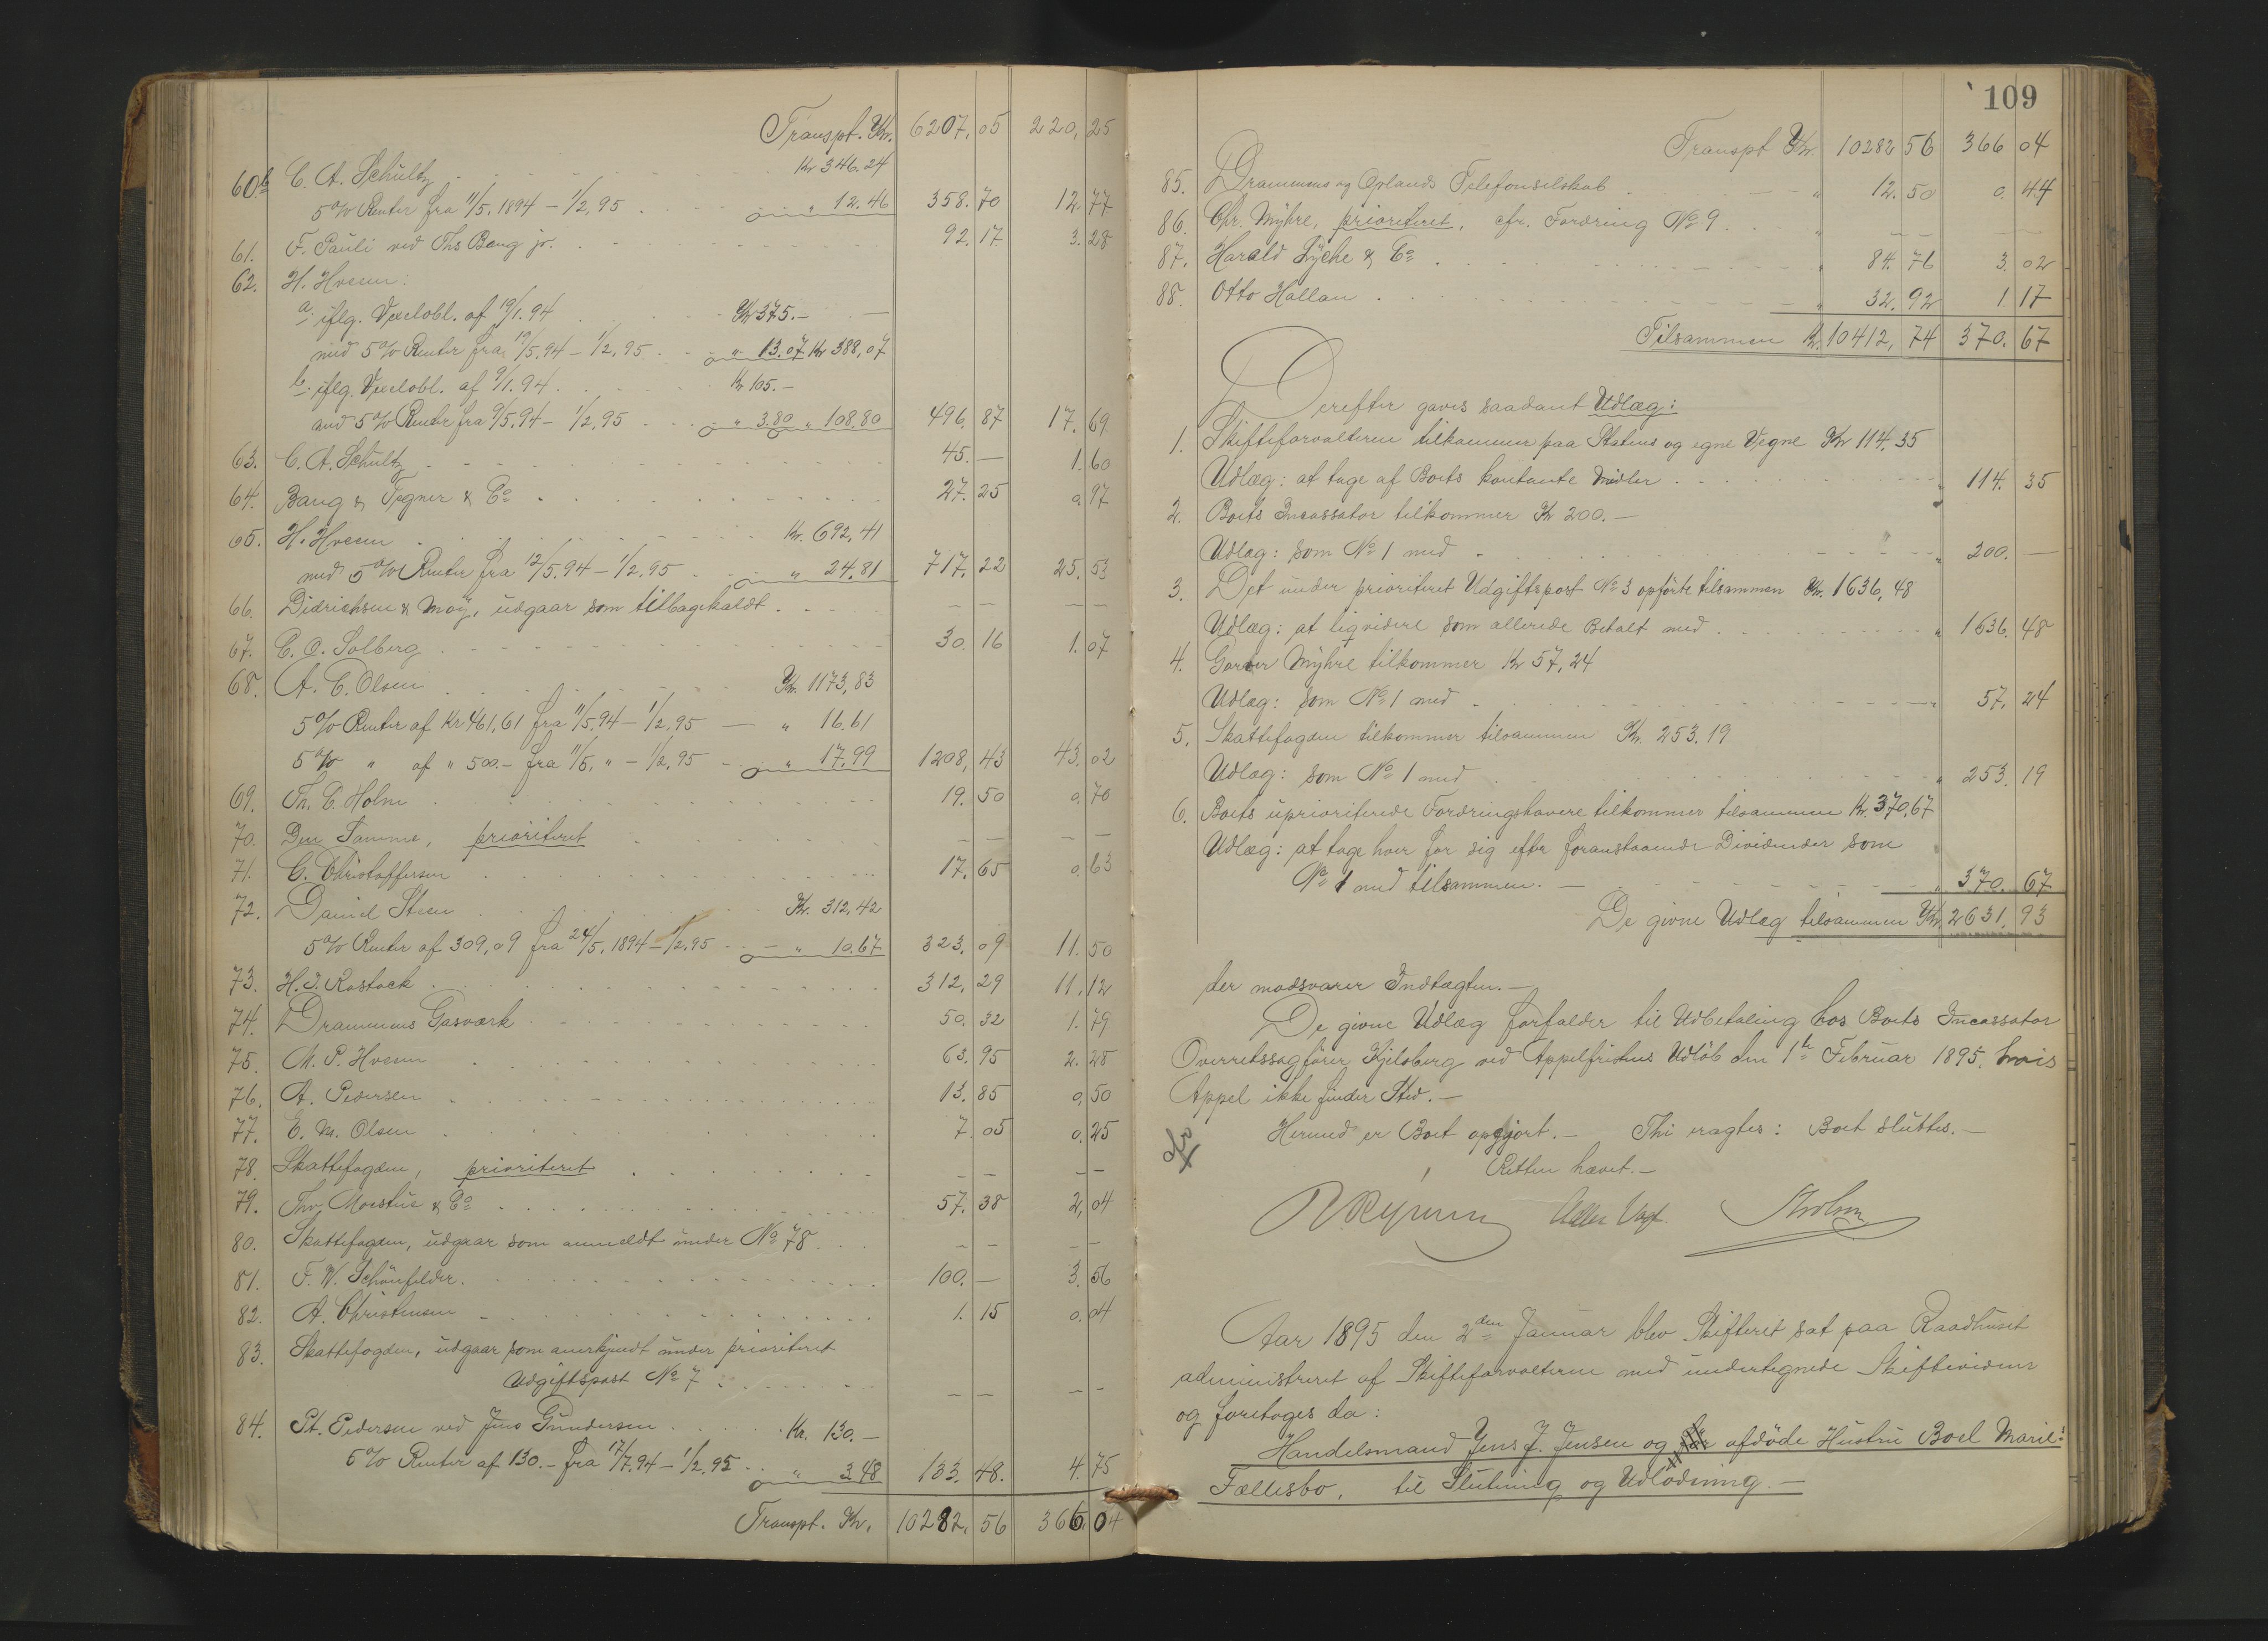 Transpt. Kr. 6207,05 220,25
60b C. A. Schultz Kr 346.24
5 % Renter fra 11/5. 1894 – 1/2, 95 " 12.46 358.70 12.77
61. F. Pauli ved Ths Bang jr. 92.17 3.28
62. H. Hvesen:
a. iflg. Vexelobl. af 19/1.94 Kr 375.–
med 5 % Renter fra 19/5.94 – 1/2, 95 " 13.07 Kr 388,07
b. iflg. Vexelobl. af 9/1.94. Kr 105.–
med 5 % Renter fra 9/5.94 – 1/2, 95 " 3.80 " 108.80 496,87 17.69
63. C. A. Schultz 45.– 1.60
64. Bang & Tegner & Co 27.25 0.97
65. H. Hvesen Kr. 692,41
med 5 % Renter fra 12/5.94 – 1/2.95 " 24.81 717.22 25.53
66. Didrichsen & Møy, udgaar som tilbagekaldt. – – – –
67. C. O. Solberg 30.16 1.07
68. A. C. Olsen Kr. 1173,83
5 % Renter af Kr 461,61 fra 11/5.94 – 1/2.95 – " 16.61
5 % " af " 500.– fra 11/5, " – 1/2, 95 – " 17.99 1208,43 43.02
69. Th. C. Holm 19.50 0.70
70. Den Samme, prioriteret – – – –
71. C. Christoffersen 17.65 0.63
72. Daniel Steen Kr. 312,42
5 % Renter af 309,09 fra 24/5, 1894 – 1/2.95 – " 10.67 323.09 11.50
73. H. J. Rostock 312,29 11.12
74. Drammens Gasværk 50.32 1.79
75. M. P. Hvesen 63.95 2.28
76. A. Pedersen 13.85 0,50
77. E. M. Olsen 7.05 0.25
78. Skattefogden, prioriteret – – – –
79. Thv. Moestue & Co 57.38 2,04
80. Skattefogden, udgaar som anmeldt under No 78. – – – –
81. F. W. Schönfelder. 100.– 3.56
82. A. Christensen 1.15 0.04
83. Skattefogden, udgaar som anerkjendt under prioriteret
Udgiftspost No 7. – – – –
84. Pt. Pedersen ved Jens Gundersen Kr. 130.–
5 % Renter af 130.– fra 17/7.94 – 1/2.95 " 3,48 133.48. 4.75
Transpt. Kr. 10282.56 366.04
109
Transpt Kr. 10282 56 366 04
85. Drammens og Oplands Telefonselskab " 12.50 0.44
86. Chr. Myhre, prioriteret, cfr. Fordring No 9. " – – – –
87. Harald Lyche & Co " 84.76 3.02
88. Otto Hallan " 32.92 1.17
Tilsammen Kr. 10412,74 370.67
Derefter gaves saadant Udlæg:
1. Skifteforvalteren tilkommer paa Statens og egne Vegne Kr 114.35
Udlæg: at tage af Boets kontante Midler " 114.35
2. Boets Incassator tilkommer Kr 200.–
Udlæg: som No 1 med " 200.–
3. Det under prioriteret Udgiftspost No 3 opførte tilsammen Kr. 1636,48
Udlæg: at liqvidere som allerede Betalt med " 1636.48
4. Garver Myhre tilkommer Kr 57,24
Udlæg: som No 1 med " 57.24
5. Skattefogden tilkommer tilsammen Kr. 253.19
Udlæg: som No 1 med " 253.19
6. Boets uprioriterede Fordringshavere tilkommer tilsammen Kr. 370,67
Udlæg: at tage hver for sig efter foranstaaende Dividender som
No 1 med tilsammen. – " 370.67
De givne Udlæg tilsammen Kr. 2631.93
der modsvarer Indtægten. –
De givne Udlæg forfalder til Udbetaling hos Boets Incassator
Overretssagfører Kjelsberg ved Appelfristens Udløb den 1te Februar 1895, hvis
Appel ikke finder Sted. –
Hermed er Boet opgjort. – Thi eragtes: Boet sluttes. –
Retten hævet. –
Aar 1895 den 2den Januar blev Skifteret sat paa Raadhuset
administreret af Skifteforvalteren med undertegnede Skiftevidner
og foretoges da:
Handelsmand Jens J. Jensen og afdøde Hustru Boel Marie's
Fællesbo, til Slutning og Udlodning. –